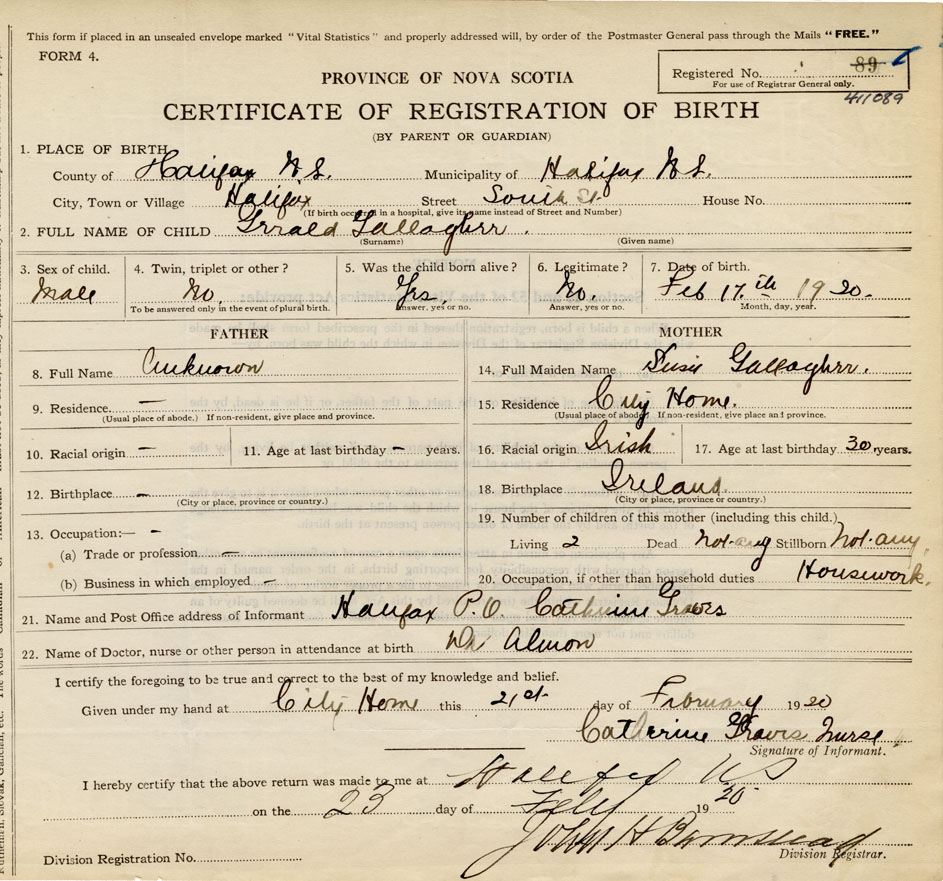 This form if placed in an unsealed envelope marked "Vital Statistics" and properly addressed will, by order of the Postmaster General pass through the Mails "FREE."
FORM 4.
Registered No. 89
For use of Registrar General only.
411089
PROVINCE OF NOVA SCOTIA
CERTIFICATE OF REGISTRATION OF BIRTH
(BY PARENT OR GUARDIAN)
1. PLACE OF BIRTH
County of Halifax N.S. Municipality of Halifax N.S.
City, Town or Village Halifax Street South St. House No.
(If birth occurred in a hospital, give its name instead of Street and Number)
2. FULL NAME OF CHILD Gerald Gallagher.
(Surname) (Given name)
3. Sex of child. 4. Twin, triplet or other? 5. Was the child born alive? 6. Legitimate? 7. Date of birth.
Male No. Yes. No. Feb 17.th 1920.
To be answered only in the event of plural birth. Answer, yes or no. Answer, yes or no. Month, day, year.
FATHER
8. Full Name Unknown
9. Residence. —
(Usual place of abode.) If non-resident, give place and province.
10. Racial origin — 11. Age at last birthday — years.
12. Birthplace —
(City or place, province or country.)
13. Occupation:— —
(a) Trade or profession —
(b) Business in which employed —
MOTHER
14. Full Maiden Name Susie Gallagher.
15. Residence City Home.
(Usual place of abode) If non-resident, give place and province.
16. Racial origin Irish 17. Age at last birthday 30 years.
18. Birthplace Ireland.
(City or place, province or country.)
19. Number of children of this mother (including this child.)
Living 2 Dead not-any Stillborn not-any
20. Occupation, if other than household duties Housework.
21. Name and Post Office address of Informant Halifax P.O. Catherine Graves
22. Name of Doctor, nurse or other person in attendance at birth Dr Almon
I certify the foregoing to be true and correct to the best of my knowledge and belief.
Given under my hand at City Home this 21st day of February 1920
Catherine Graves Nurse.
Signature of Informant.
I hereby certify that the above return was made to me at Halifax NS
on the 23 day of Feby 1920
John H Barnstead
Division Registrar.
Division Registration No.